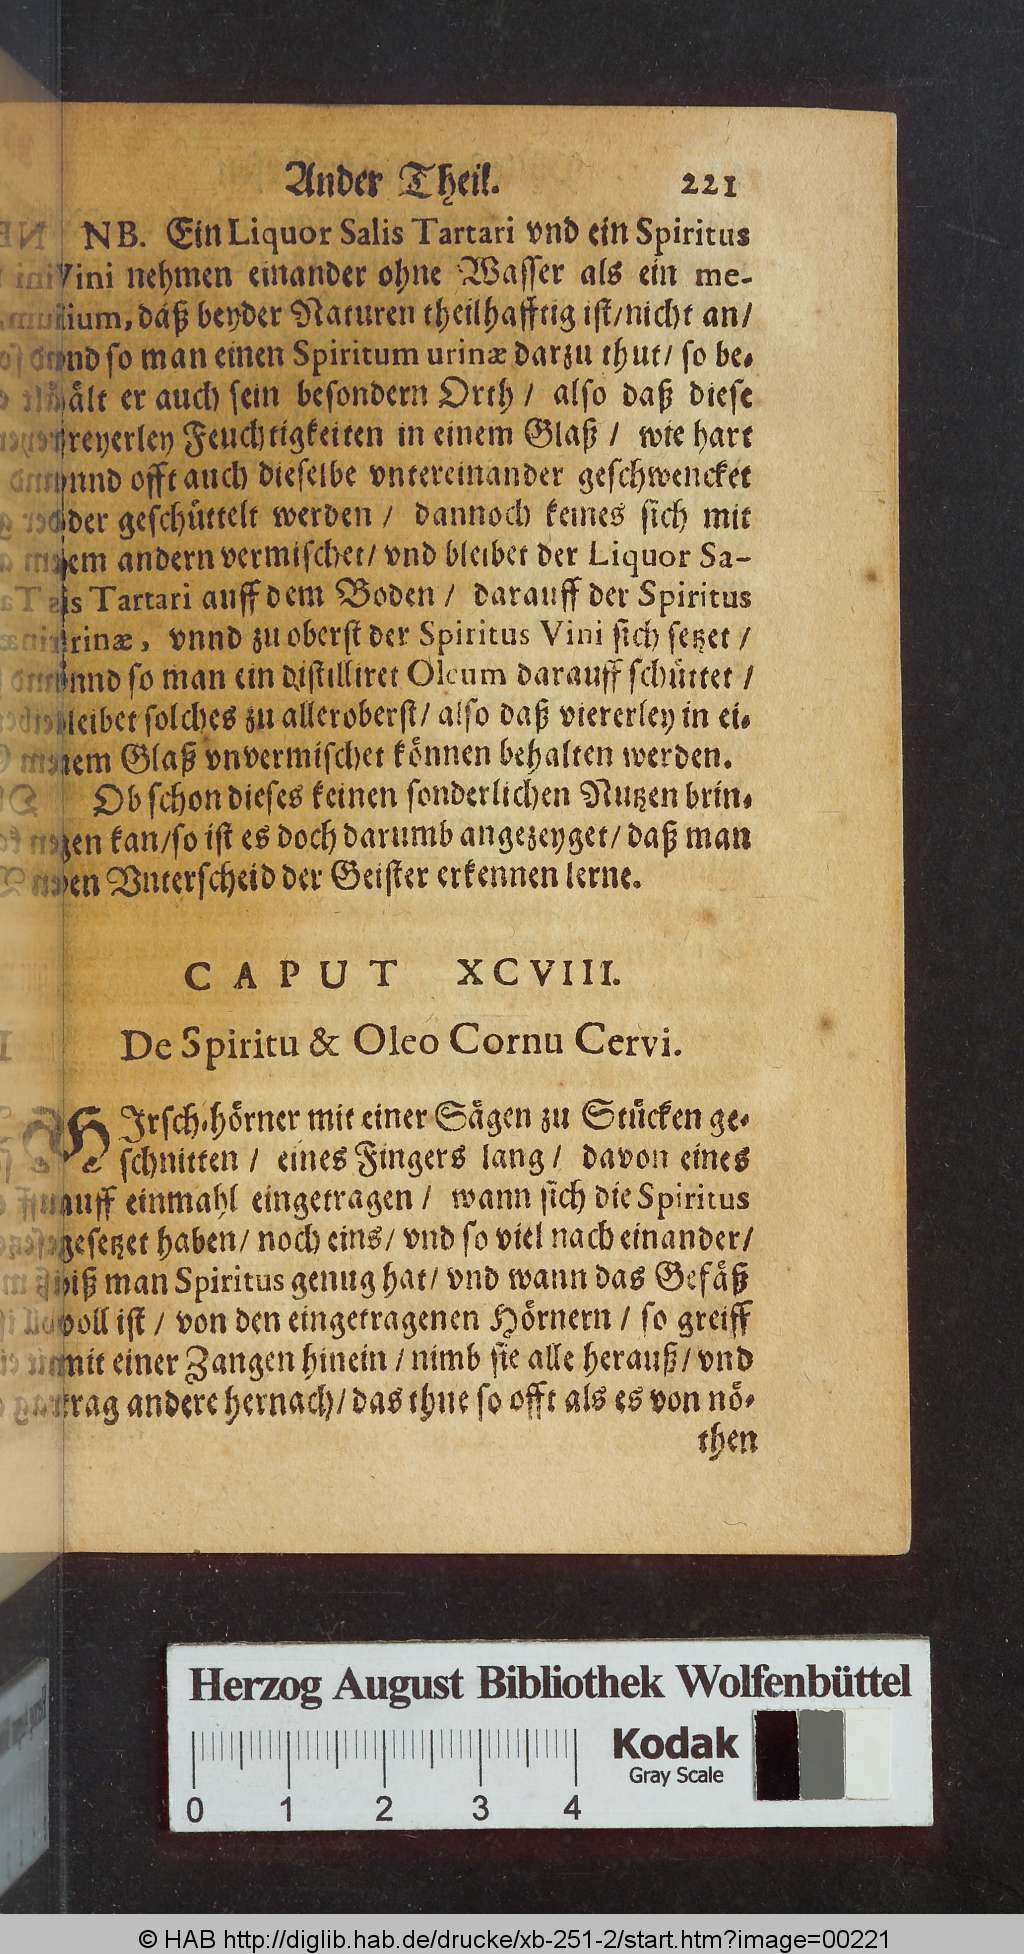 Ander Theil. 221
NB. Ein Liquor Salis Tartari vnd ein Spiritus
Vini nehmen einander ohne Wasser als ein me-
dium, daß beyder Naturen theilhafftig ist/nicht an/
vnd so man einen Spiritum urinæ darzu thut/ so be-
hält er auch sein besondern Orth / also daß diese
dreyerley Feuchtigkeiten in einem Glaß / wie hart
vnnd offt auch dieselbe vntereinander geschwencket
oder geschüttelt werden / dannoch keines sich mit
dem andern vermischet/ vnd bleibet der Liquor Sa-
lis Tartari auff dem Boden / darauff der Spiritus
urinæ, vnnd zu oberst der Spiritus Vini sich setzet /
vnnd so man ein distilliret Oleum darauff schüttet /
bleibet solches zu alleroberst/ also daß viererley in ei-
nem Glaß vnvermischet können behalten werden.
Ob schon dieses keinen sonderlichen Nutzen brin-
gen kan/so ist es doch darumb angezeyget/ daß man
den Vnterscheid der Geister erkennen lerne.
CAPUT XCVIII.
De Spiritu & Oleo Cornu Cervi.
HIrsch-hörner mit einer Sägen zu Stücken ge-
schnitten / eines Fingers lang / davon eines
auff einmahl eingetragen / wann sich die Spiritus
gesetzet haben/ noch eins/ vnd so viel nach einander/
biß man Spiritus genug hat/ vnd wann das Gefäß
voll ist / von den eingetragenen Hörnern / so greiff
mit einer Zangen hinein / nimb sie alle herauß/ vnd
trag andere hernach/ das thue so offt als es von nö-
then
Herzog August Bibliothek Wolfenbüttel
Kodak
Gray Scale
0 1 2 3 4
© HAB http://diglib.hab.de/drucke/xb-251-2/start.htm?image=00221